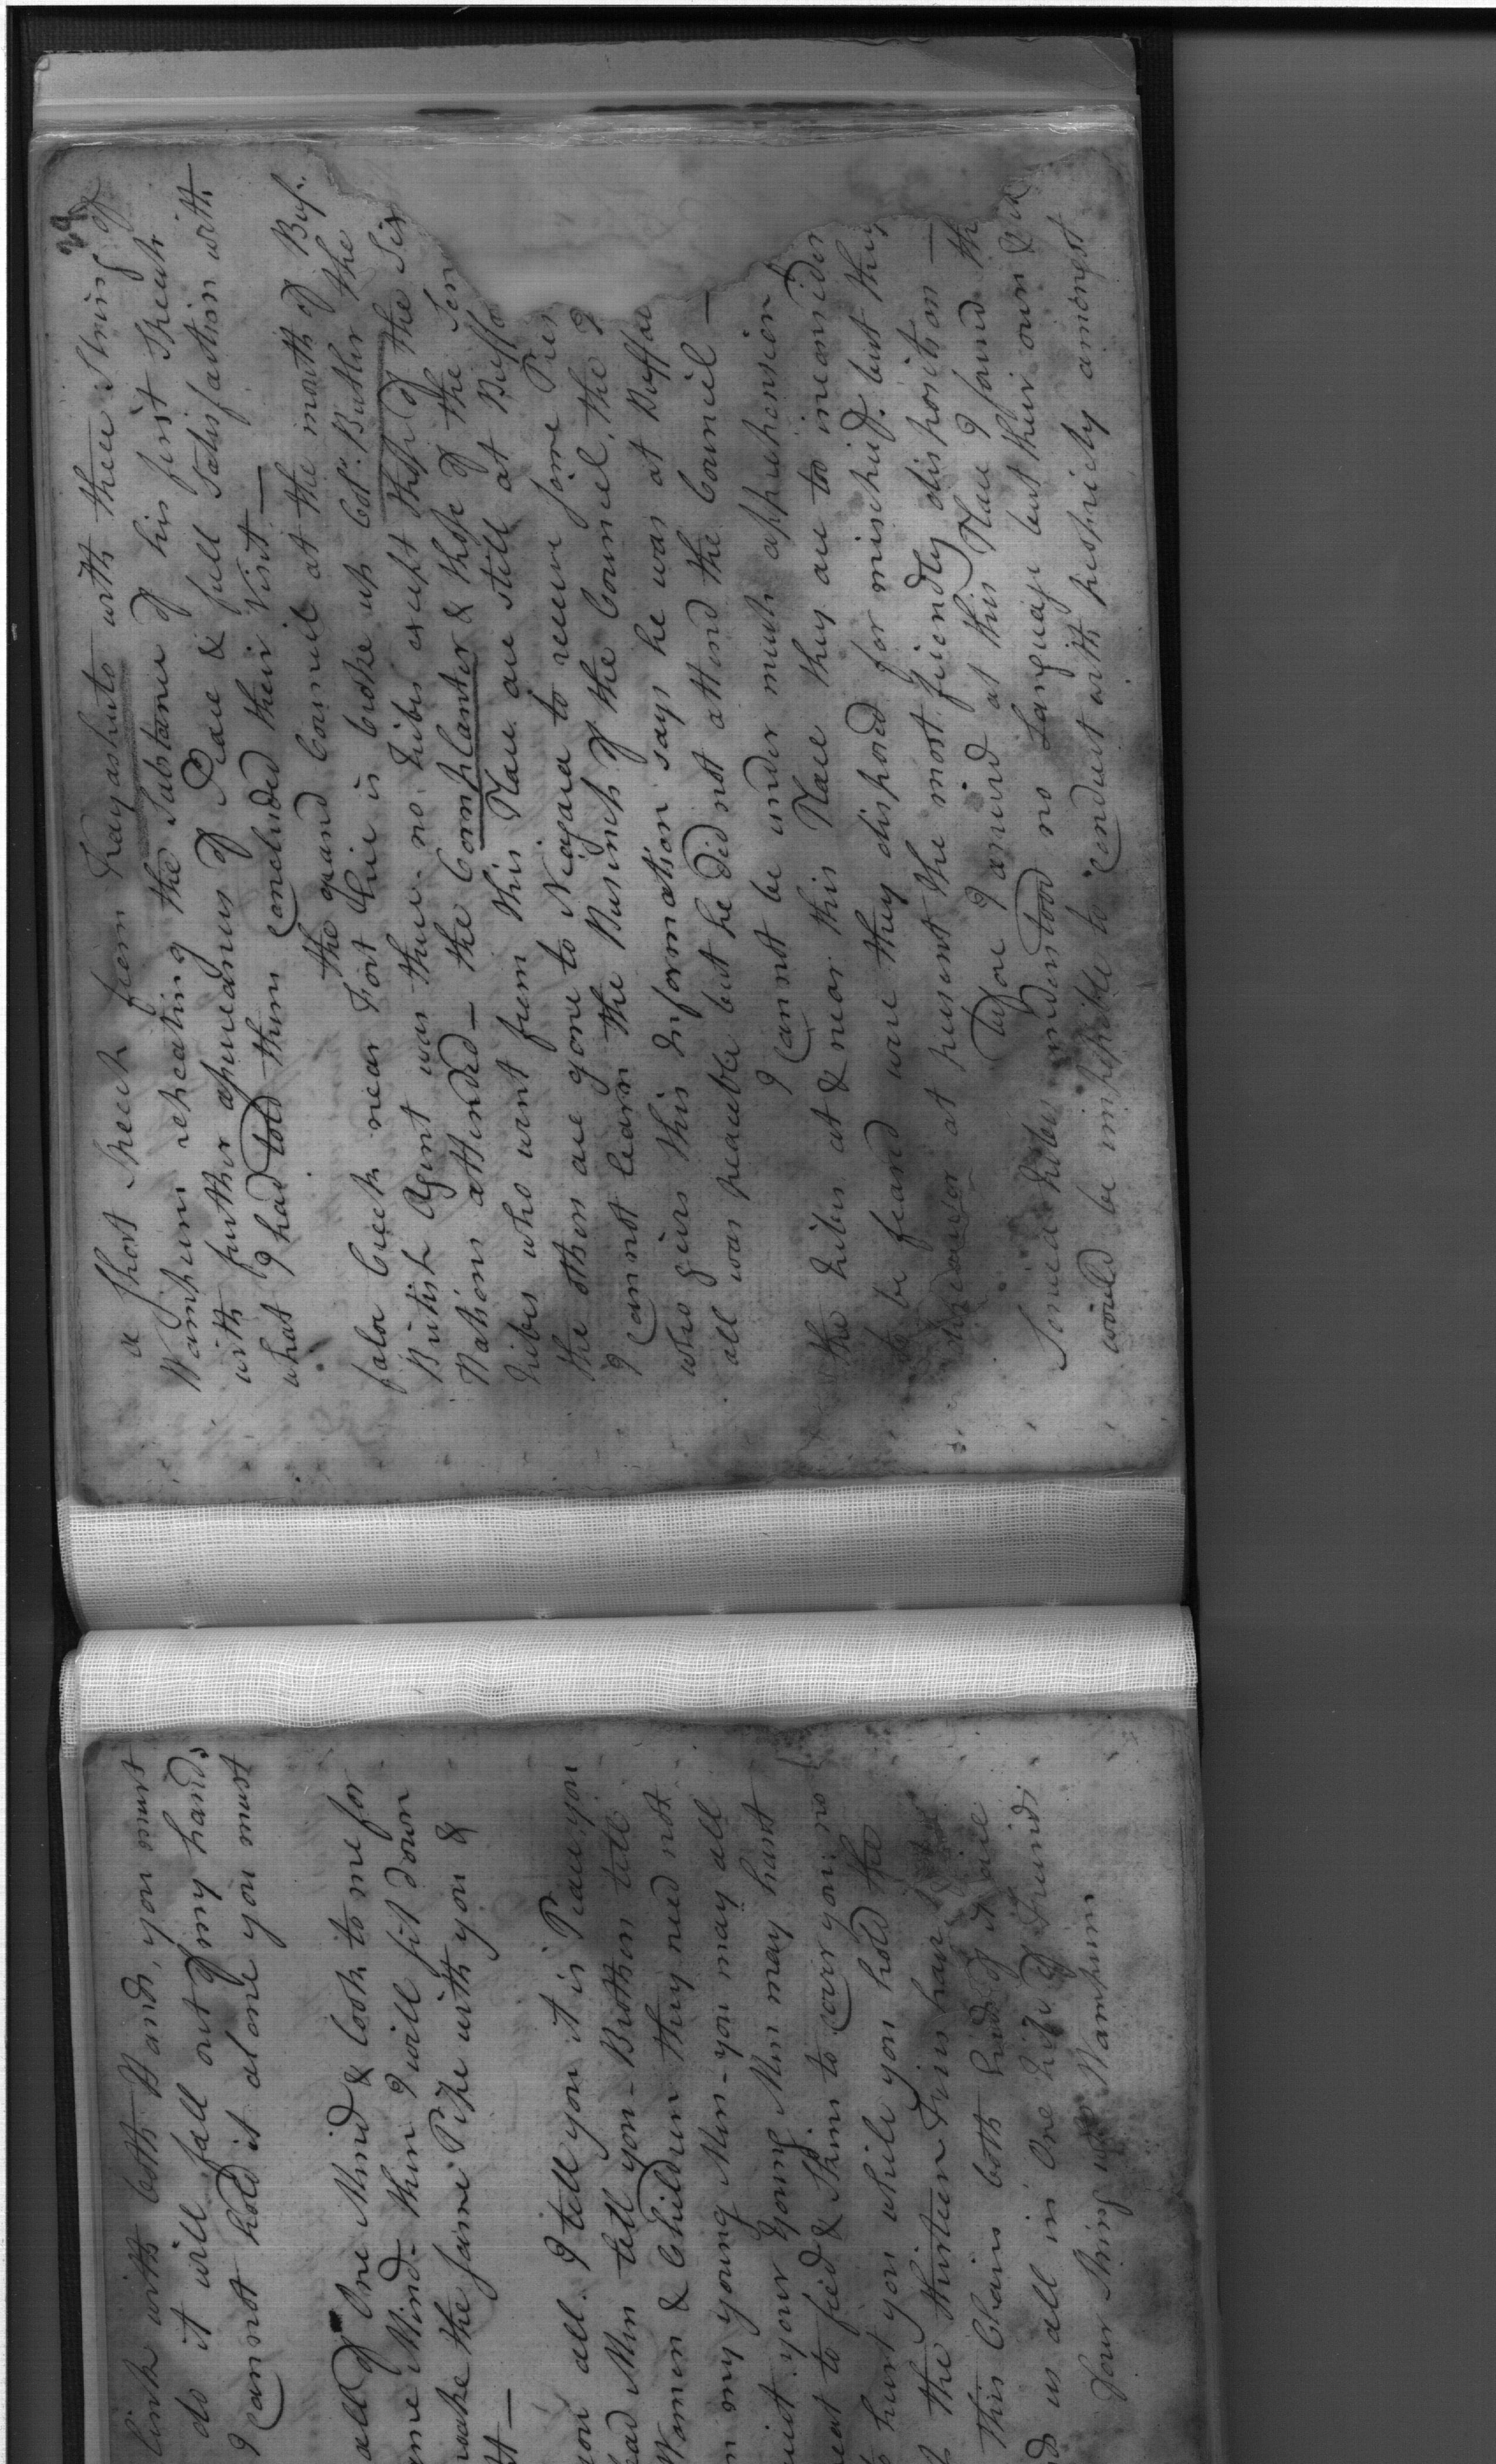 link with both Hands, you must
do it will fall out of my hands
I cannot hold it alone you must
all of One Mind & look to me for
me Mind - then I will sit down
moake the same Pipe with you &
you all. I tell you it is Peace you
ead Men tell you - Brothers tell
Women & Children they need not
my young Men - you may all
your young Men may hunt
eat to feed & Skins to cover you, no
hurt you while you hold the
the thirteen Fires has
this Chain both Ends of it are
us all in One of Friends
Four Strings Wampum
29
a short Speech from Kayashuto with three Strings of
Wampum repeating the Substance of his first Speech
with further assureances of Peace & full Satisfaction with
what I had told them concluded their Visit —
the grand Council at the mouth of Buf:
faloe Creek near Fort Erie is broke up Col: Butler the
British Agent was there. no Tribes except those of the Six
Nations attended — the Cornplanter & those of the Sen
Tribes who went from this Place are still at Buffa
the others are gone to Niagara to receive some Pres
I cannot learn the Business of the Council, the I
who gives this Information says he was at Buffaloe
all was peaceble but he did not attend the Council —
I cannot be under much apprehension
the tribes at & near this Place they are too inconsider
to be feard were they disposed for mischief. but they
at present the most friendly disposition —
before I arrived at this Place I found th
Seneca tribes understood no Language but their own & it
would be impossible to conduct with propriety amongst